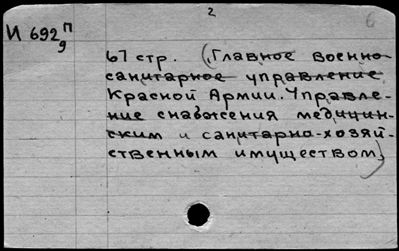 2
6
И 692 П
9
67 стр. (Главное военно-
санитарное управление
Красной Армии. Управле-
ние снабжения медицин-
ским и санитарно-хозяй-
ственным имуществом)